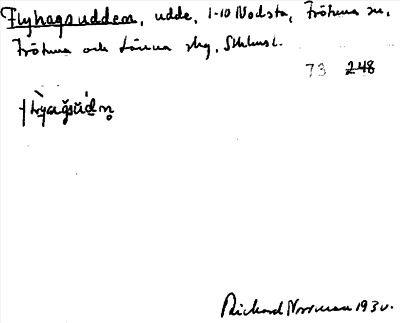 Flyhagsudden, udde, 1-10 Nodsta, Frötuna sn,
Frötuna och Länna skg, Sthlms l.
73 248
Richard Norrman 1930.